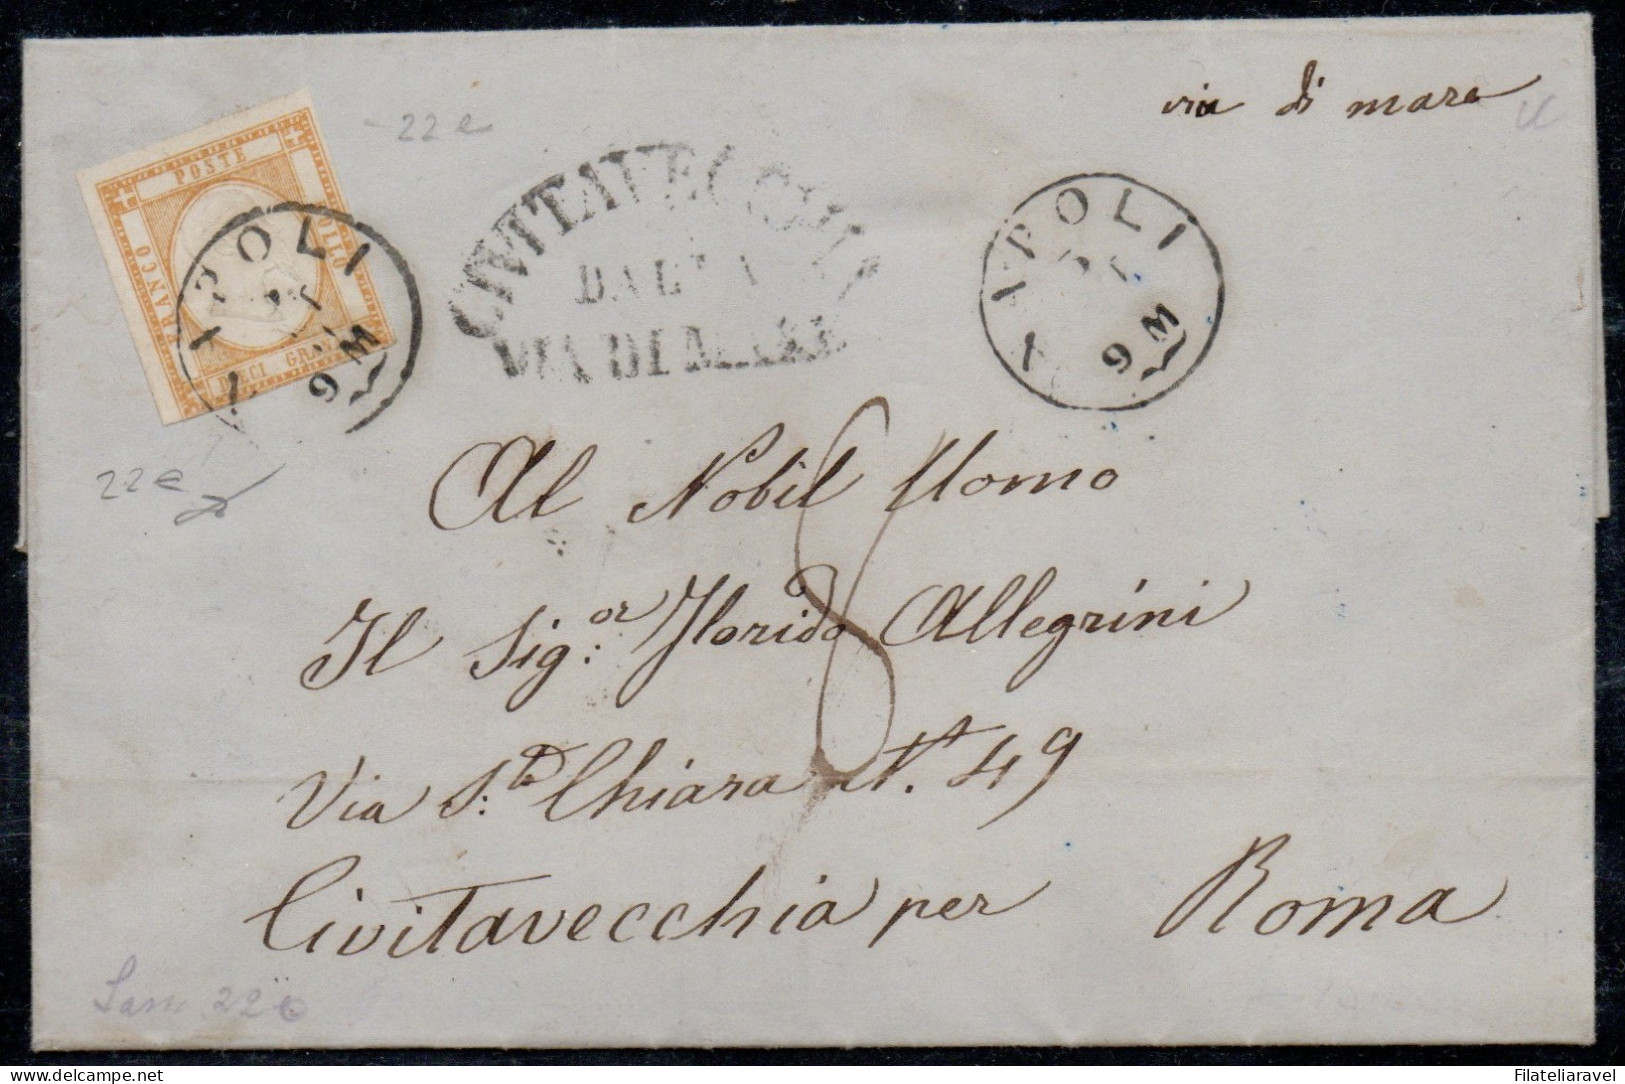 via di mare
22 e
POSTE
FRANCO
BOLLO
DIECI GRANA
NAPOLI
9 M
CIVITAVECCHIA
DALLA
VIA DI MARE
NAPOLI
9 M
22 e
Al Nobil Uomo
Il Sig:or Florido Allegrini
Via S:ta Chiara N.° 49
Civitavecchia per Roma
Sass 22e
delcampe.net
Filateliaravel